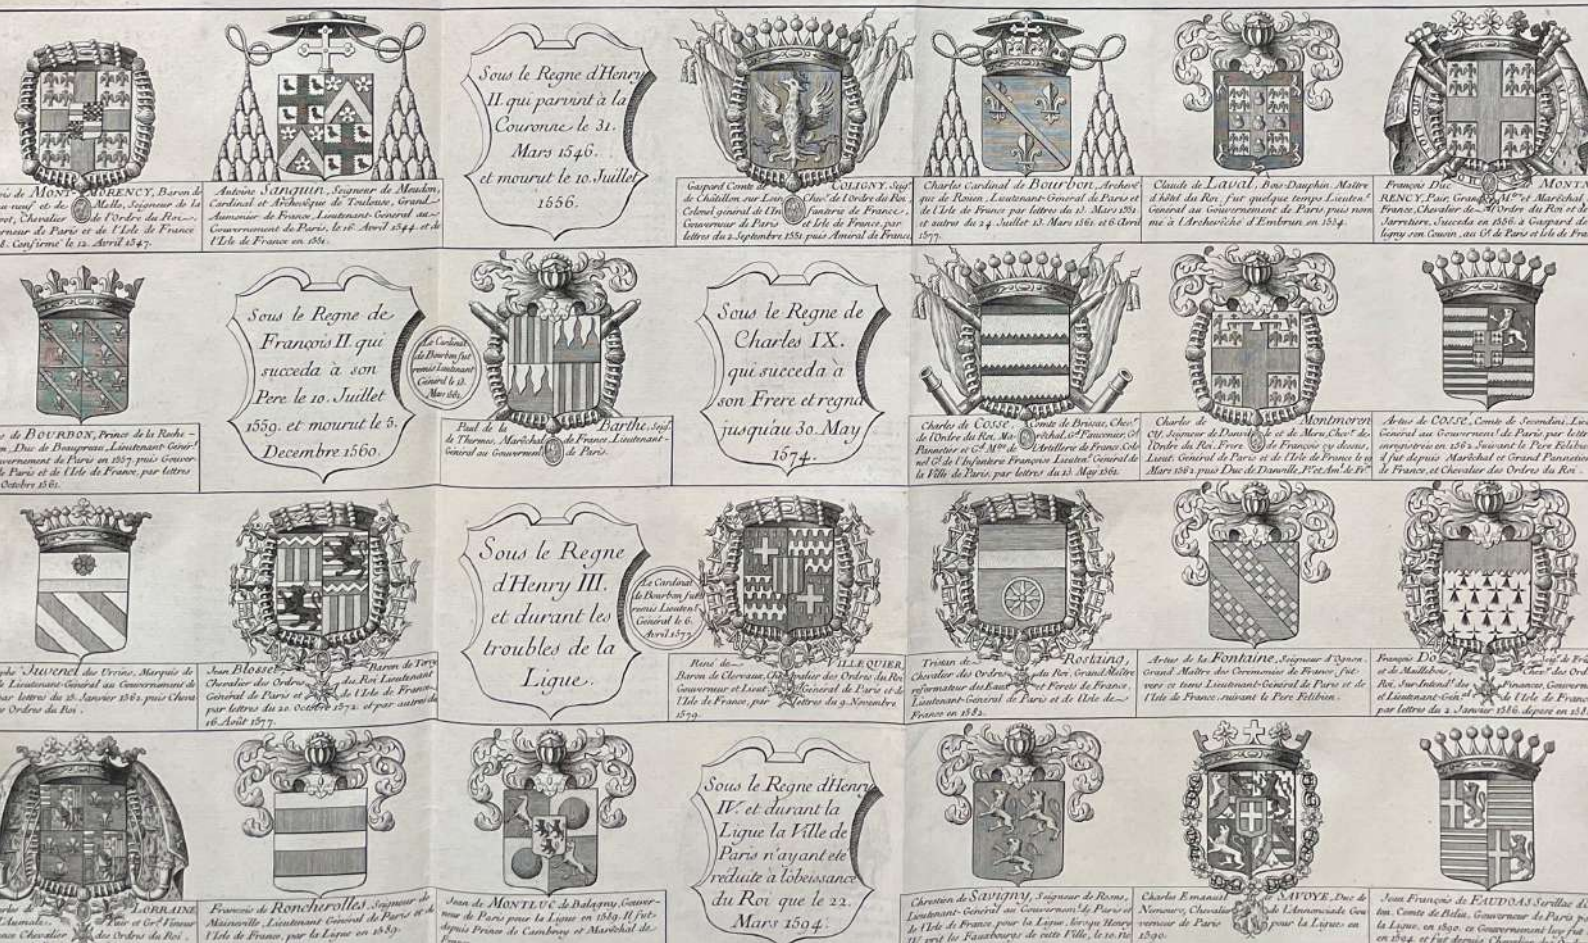 ois de MONTMORENCY, Baron de
au-neuf et de Mello, Seigneur de la
rot, Chevalier de l'Ordre du Roi
erneur de Paris et de l'Isle de France
8. Confirmé le 12. Avril 1547.
Antoine Sanguin, Seigneur de Meudon,
Cardinal et Archevêque de Toulouse, Grand
Aumonier de France, Lieutenant Général au
Gouvernement de Paris, le 16. Avril 1544. et de
l'Isle de France en 1551.
Sous le Regne d'Henry
II. qui parvint à la
Couronne le 31.
Mars 1546.
et mourut le 10. Juillet
1556.
Gaspard Comte de COLIGNY, Seigr.
de Châtillon sur Loin Chevr. de l'Ordre du Roi,
Colonel général de l'Infanterie de France,
Gouverneur de Paris et Isle de France, par
lettres du 2. Septembre 1551 puis Amiral de France,
Charles Cardinal de Bourbon, Archevê
que de Rouen, Lieutenant-Général de Paris et
de l'Isle de France par lettres du 13. Mars 1551
et autres du 24 Juillet 13. Mars 1561. et 6. Avril
1577.
Claude de Laval, Bois-Dauphin, Maître
d'hôtel du Roi, fut quelque temps Lieutent.
Général au Gouvernement de Paris puis nom
mé à l'Archevêché d'Embrun en 1554.
QUI
MAL
François Duc de MONTM
RENCY, Pair, Grand Mtre. et Maréchal
France, Chevalier de l'Ordre du Roi et de
Jarretière, Succeda en 1556. à Gaspard
ligny son Cousin, au Gt. de Paris et Isle de Fran
s de BOURBON, Prince de la Roche-
n, Duc de Beaupreau, Lieutenant-Génér.l
uvernement de Paris en 1557. puis Gouver
de Paris et de l'Isle de France, par lettres
Octobre 1561.
Sous le Regne de
François II. qui
succeda à son
Pere le 10. Juillet
1559. et mourut le 5.
Decembre 1560.
Le Cardinal
de Bourbon fut
remis Lieutenant
Général le 13.
Mars 1561.
Paul de la Barthe, Seigr.
de Thermes, Maréchal de France, Lieutenant-
Général au Gouvernemt. de Paris.
Sous le Regne de
Charles IX.
qui succeda à
son Frere et regna
jusqu'au 30. May
1574.
Charles de COSSÉ, Comte de Brissac, Chevr.
de l'Ordre du Roi, Maréchal, Gd. Fauconier, Gd.
Pannetier et Gd. Mtre. de l'Artillerie de France, Colo
nel Gl. de l'Infanterie Françoise Lieutent. Général de
la Ville de Paris, par lettres du 13. May 1562.
Charles de Montmoren
cy, Seigneur de Danville et de Meru, Chevr. de
l'Ordre du Roi, Frere de François cy dessus,
Lieut. Général de Paris et de l'Isle de France le 19
Mars 1562. puis Duc de Danville, Pr. et Aml. de Fr.
Artus de COSSÉ, Comte de Secondini, Lieu
Général au Gouvernemt. de Paris, par lettr
enregistrées en 1562. Suivant le Pere Felibien
il fut depuis Maréchal et Grand Pannetier
de France, et Chevalier des Ordres du Roi.
ophe Juvenel des Ursins, Marquis de
Lieutenant-Général au Gouvernement de
par lettres du 25. Janvier 1562. puis Cheva
s Ordres du Roi.
Jean Blosset Baron de Torcy
Chevalier des Ordres du Roi Lieutenant
Général de Paris et de l'Isle de France,
par lettres du 20. Octobre 1572. et par autres du
16. Août 1577.
Sous le Regne
d'Henry III.
et durant les
troubles de la
Ligue.
Le Cardinal
de Bourbon fut
remis Lieutent.
Général le 6.
Avril 1577.
René de VILLEQUIER,
Baron de Clervaux, Chevalier des Ordres du Roi
Gouverneur et Lieut. Général de Paris et de
l'Isle de France, par lettres du 9. Novembre
1579.
Tristan de Rostaing,
Chevalier des Ordres du Roi, Grand Maître
réformateur des Eaux et Forets de France,
Lieutenant-Général de Paris et de l'Isle de
France en 1582.
Artus de la Fontaine, Seigneur d'Ognon,
Grand Maître des Ceremonies de France, fut
vers ce tems Lieutenant-Général de Paris et de
l'Isle de France, suivant le Pere Felibien.
François Do Seigr. de Fr
et de Maillebois Chevr. des Ord
Roi, Sur-Intendt. des Finances, Gouvern
et Lieutenant-Génl. de l'Isle de Franc
par lettres du 2. Janvier 1586. deposé en 158
LORRAINE
d'Aumale, Pair et Gd. Veneur
ance Chevalier des Ordres du Roi.
François de Roncherolles, Seigneur de
Maineville, Lieutenant Général de Paris et de
l'Isle de France, par la Ligue en 1589.
Jean de MONTLUC de Balagny, Gouver-
neur de Paris pour la Ligue en 1589. Il fut
depuis Prince de Cambray et Maréchal de
Sous le Regne d'Henry
IV. et durant la
Ligue la Ville de
Paris n'ayant eté
réduite à l'obeissance
du Roi que le 22.
Mars 1594.
Chrestien de Savigny, Seigneur de Rosne,
Lieutenant-Général au Gouvernemt. de Paris et
de l'Isle de France pour la Ligue, lorsque Henry
IV. prit les Fauxbourgs de cette Ville, le 10. No
Charles Emanuel de SAVOYE, Duc de
Nemours, Chevalier de l'Annonciade Gou
verneur de Paris pour la Ligue en
1590.
Jean François de FAUDOAS Serillac d
ton, Comte de Belin, Gouverneur de Paris po
la Ligue, en 1590. ce Gouvernement luy fut
en 1594. et fut depuis